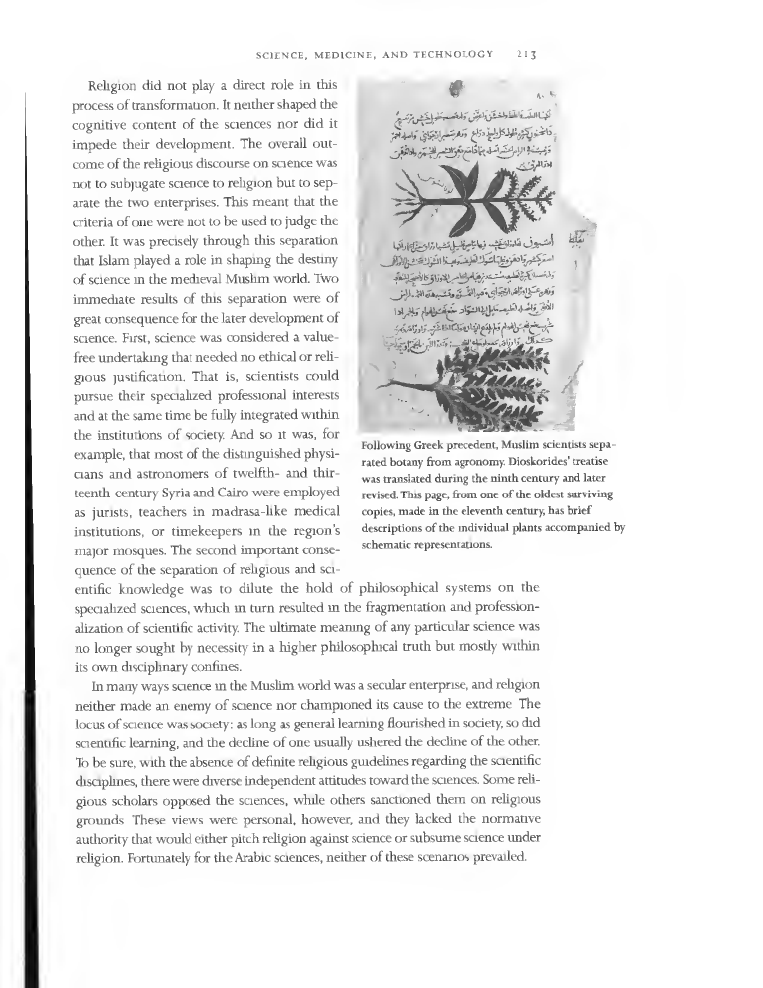 SCIENCE, MEDICINE, AND TECHNOLOGY 213
Religion did not play a direct role in this
process of transformation. It neither shaped the
cognitive content of the sciences nor did it
impede their development. The overall out-
come of the religious discourse on science was
not to subjugate science to religion but to sep-
arate the two enterprises. This meant that the
criteria of one were not to be used to judge the
other. It was precisely through this separation
that Islam played a role in shaping the destiny
of science in the medieval Muslim world. Two
immediate results of this separation were of
great consequence for the later development of
science. First, science was considered a value-
free undertaking that needed no ethical or reli-
gious justification. That is, scientists could
pursue their specialized professional interests
and at the same time be fully integrated within
the institutions of society. And so it was, for
example, that most of the distinguished physi-
cians and astronomers of twelfth- and thir-
teenth century Syria and Cairo were employed
as jurists, teachers in madrasa-like medical
institutions, or timekeepers in the region's
major mosques. The second important conse-
quence of the separation of religious and sci-
entific knowledge was to dilute the hold of philosophical systems on the
specialized sciences, which in turn resulted in the fragmentation and profession-
alization of scientific activity. The ultimate meaning of any particular science was
no longer sought by necessity in a higher philosophical truth but mostly within
its own disciplinary confines.
Following Greek precedent, Muslim scientists sepa-
rated botany from agronomy. Dioskorides' treatise
was translated during the ninth century and later
revised. This page, from one of the oldest surviving
copies, made in the eleventh century, has brief
descriptions of the individual plants accompanied by
schematic representations.
In many ways science in the Muslim world was a secular enterprise, and religion
neither made an enemy of science nor championed its cause to the extreme The
locus of science was society: as long as general learning flourished in society, so did
scientific learning, and the decline of one usually ushered the decline of the other.
To be sure, with the absence of definite religious guidelines regarding the scientific
disciplines, there were diverse independent attitudes toward the sciences. Some reli-
gious scholars opposed the sciences, while others sanctioned them on religious
grounds These views were personal, however, and they lacked the normative
authority that would either pitch religion against science or subsume science under
religion. Fortunately for the Arabic sciences, neither of these scenarios prevailed.